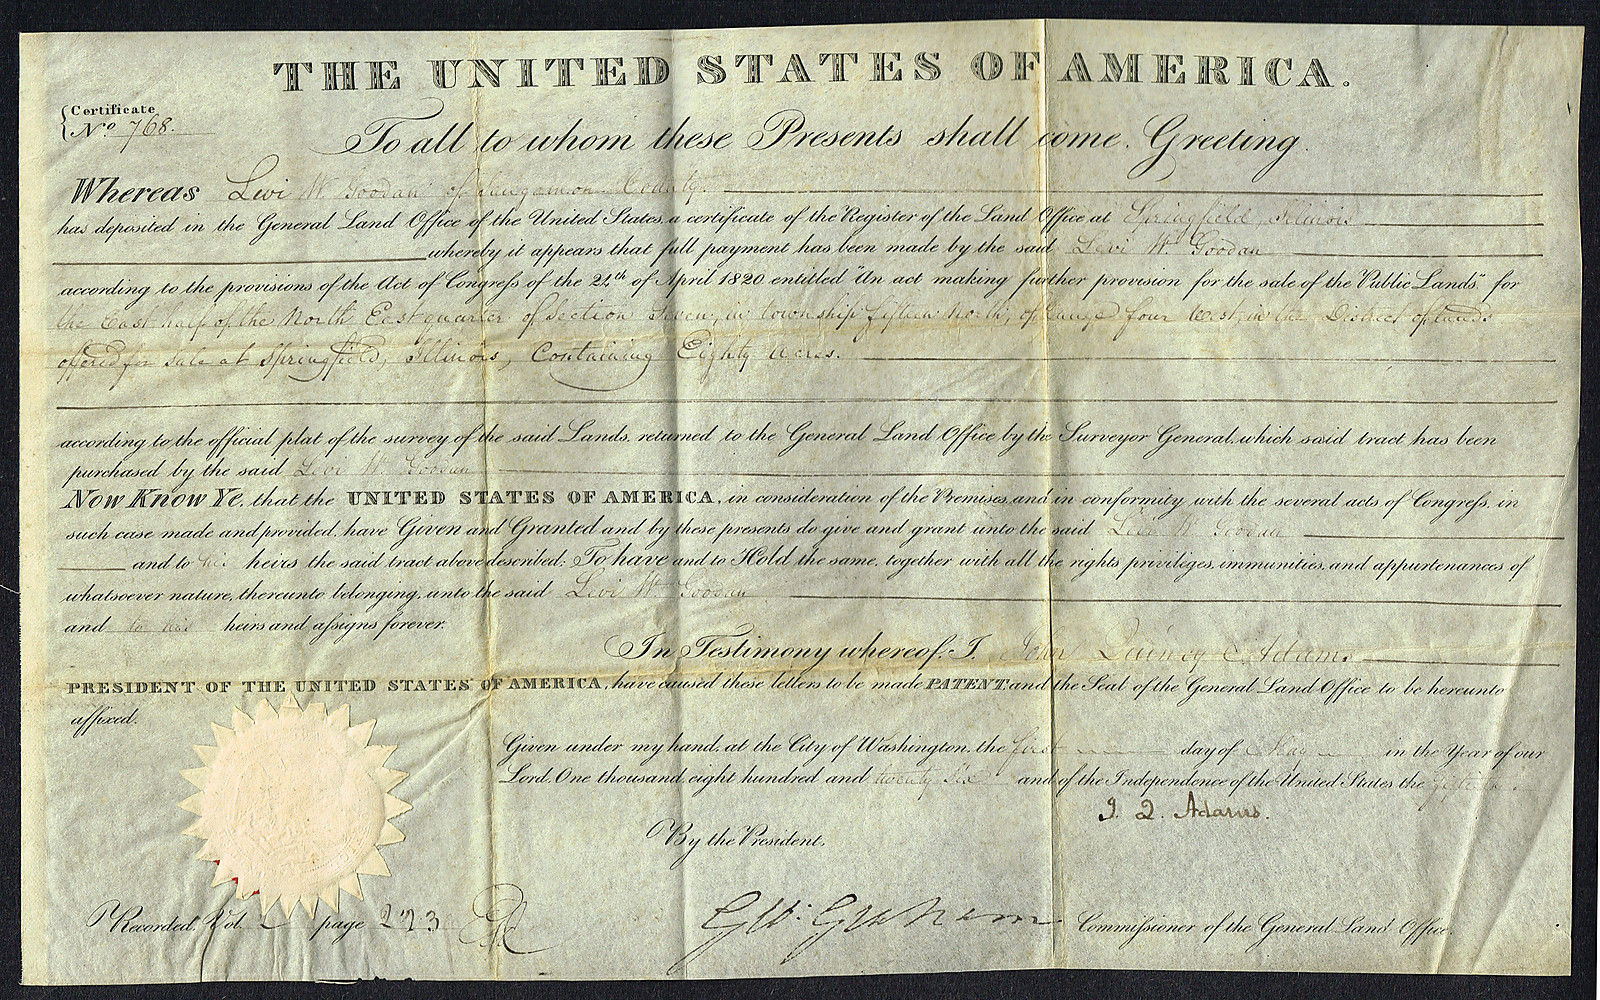 THE UNITED STATES OF AMERICA.
Certificate
No. 768.
To all to whom these Presents shall come, Greeting.
Whereas Levi W. Goodan of Sangamon County
has deposited in the General Land Office of the United States, a certificate of the Register of the Land Office at Springfield, Illinois
whereby it appears that full payment has been made by the said Levi W. Goodan
according to the provisions of the Act of Congress of the 24th of April 1820 entitled "An act making further provision for the sale of the Public Lands," for
the East half of the North East quarter of Section Seven, in township fifteen North, of Range four West, in the District of lands
offered for sale at Springfield, Illinois, Containing Eighty acres.
according to the official plat of the survey of the said Lands, returned to the General Land Office by the Surveyor General, which said tract has been
purchased by the said Levi W. Goodan
Now Know Ye, that the UNITED STATES OF AMERICA, in consideration of the Premises, and in conformity with the several acts of Congress, in
such case made and provided, have Given and Granted and by these presents do give and grant unto the said Levi W. Goodan
and to his heirs the said tract above described: To have and to Hold the same, together with all the rights privileges, immunities, and appurtenances of
whatsoever nature, thereunto belonging, unto the said Levi W. Goodan
and to his heirs and assigns forever.
In Testimony whereof, I, John Quincy Adams
PRESIDENT OF THE UNITED STATES OF AMERICA, have caused these letters to be made PATENT and the Seal of the General Land Office to be hereunto
affixed.
Given under my hand, at the City of Washington, the first day of May in the Year of our
Lord, One thousand eight hundred and twenty six and of the Independence of the United States the fiftieth.
J. Q. Adams.
By the President,
Recorded, Vol. 2 page 273 G W: Graham Commissioner of the General Land Office